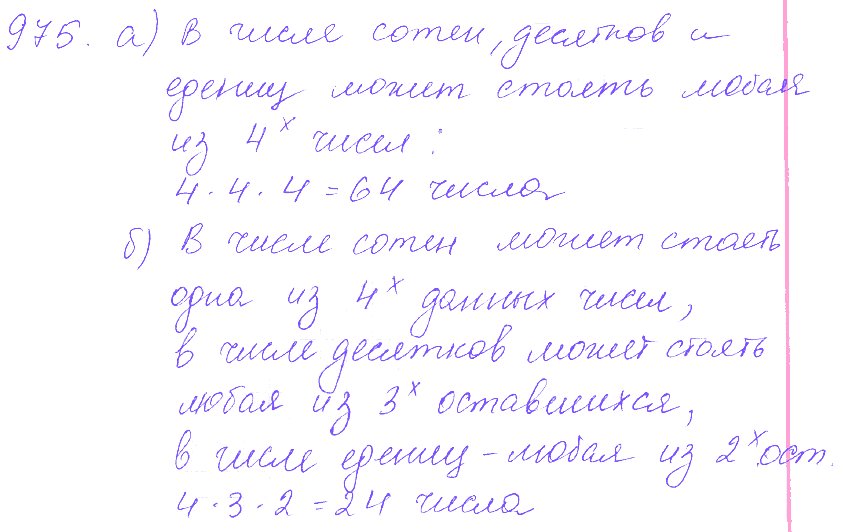 975. а) В числе сотен, десятков и
едениц может стоять любая
из 4х чисел:
4 · 4 · 4 = 64 числа
б) В числе сотен может стоять
одна из 4х данных чисел,
в числе десятков может стоять
любая из 3х оставшихся,
в числе едениц – любая из 2х ост.
4 · 3 · 2 = 24 числа